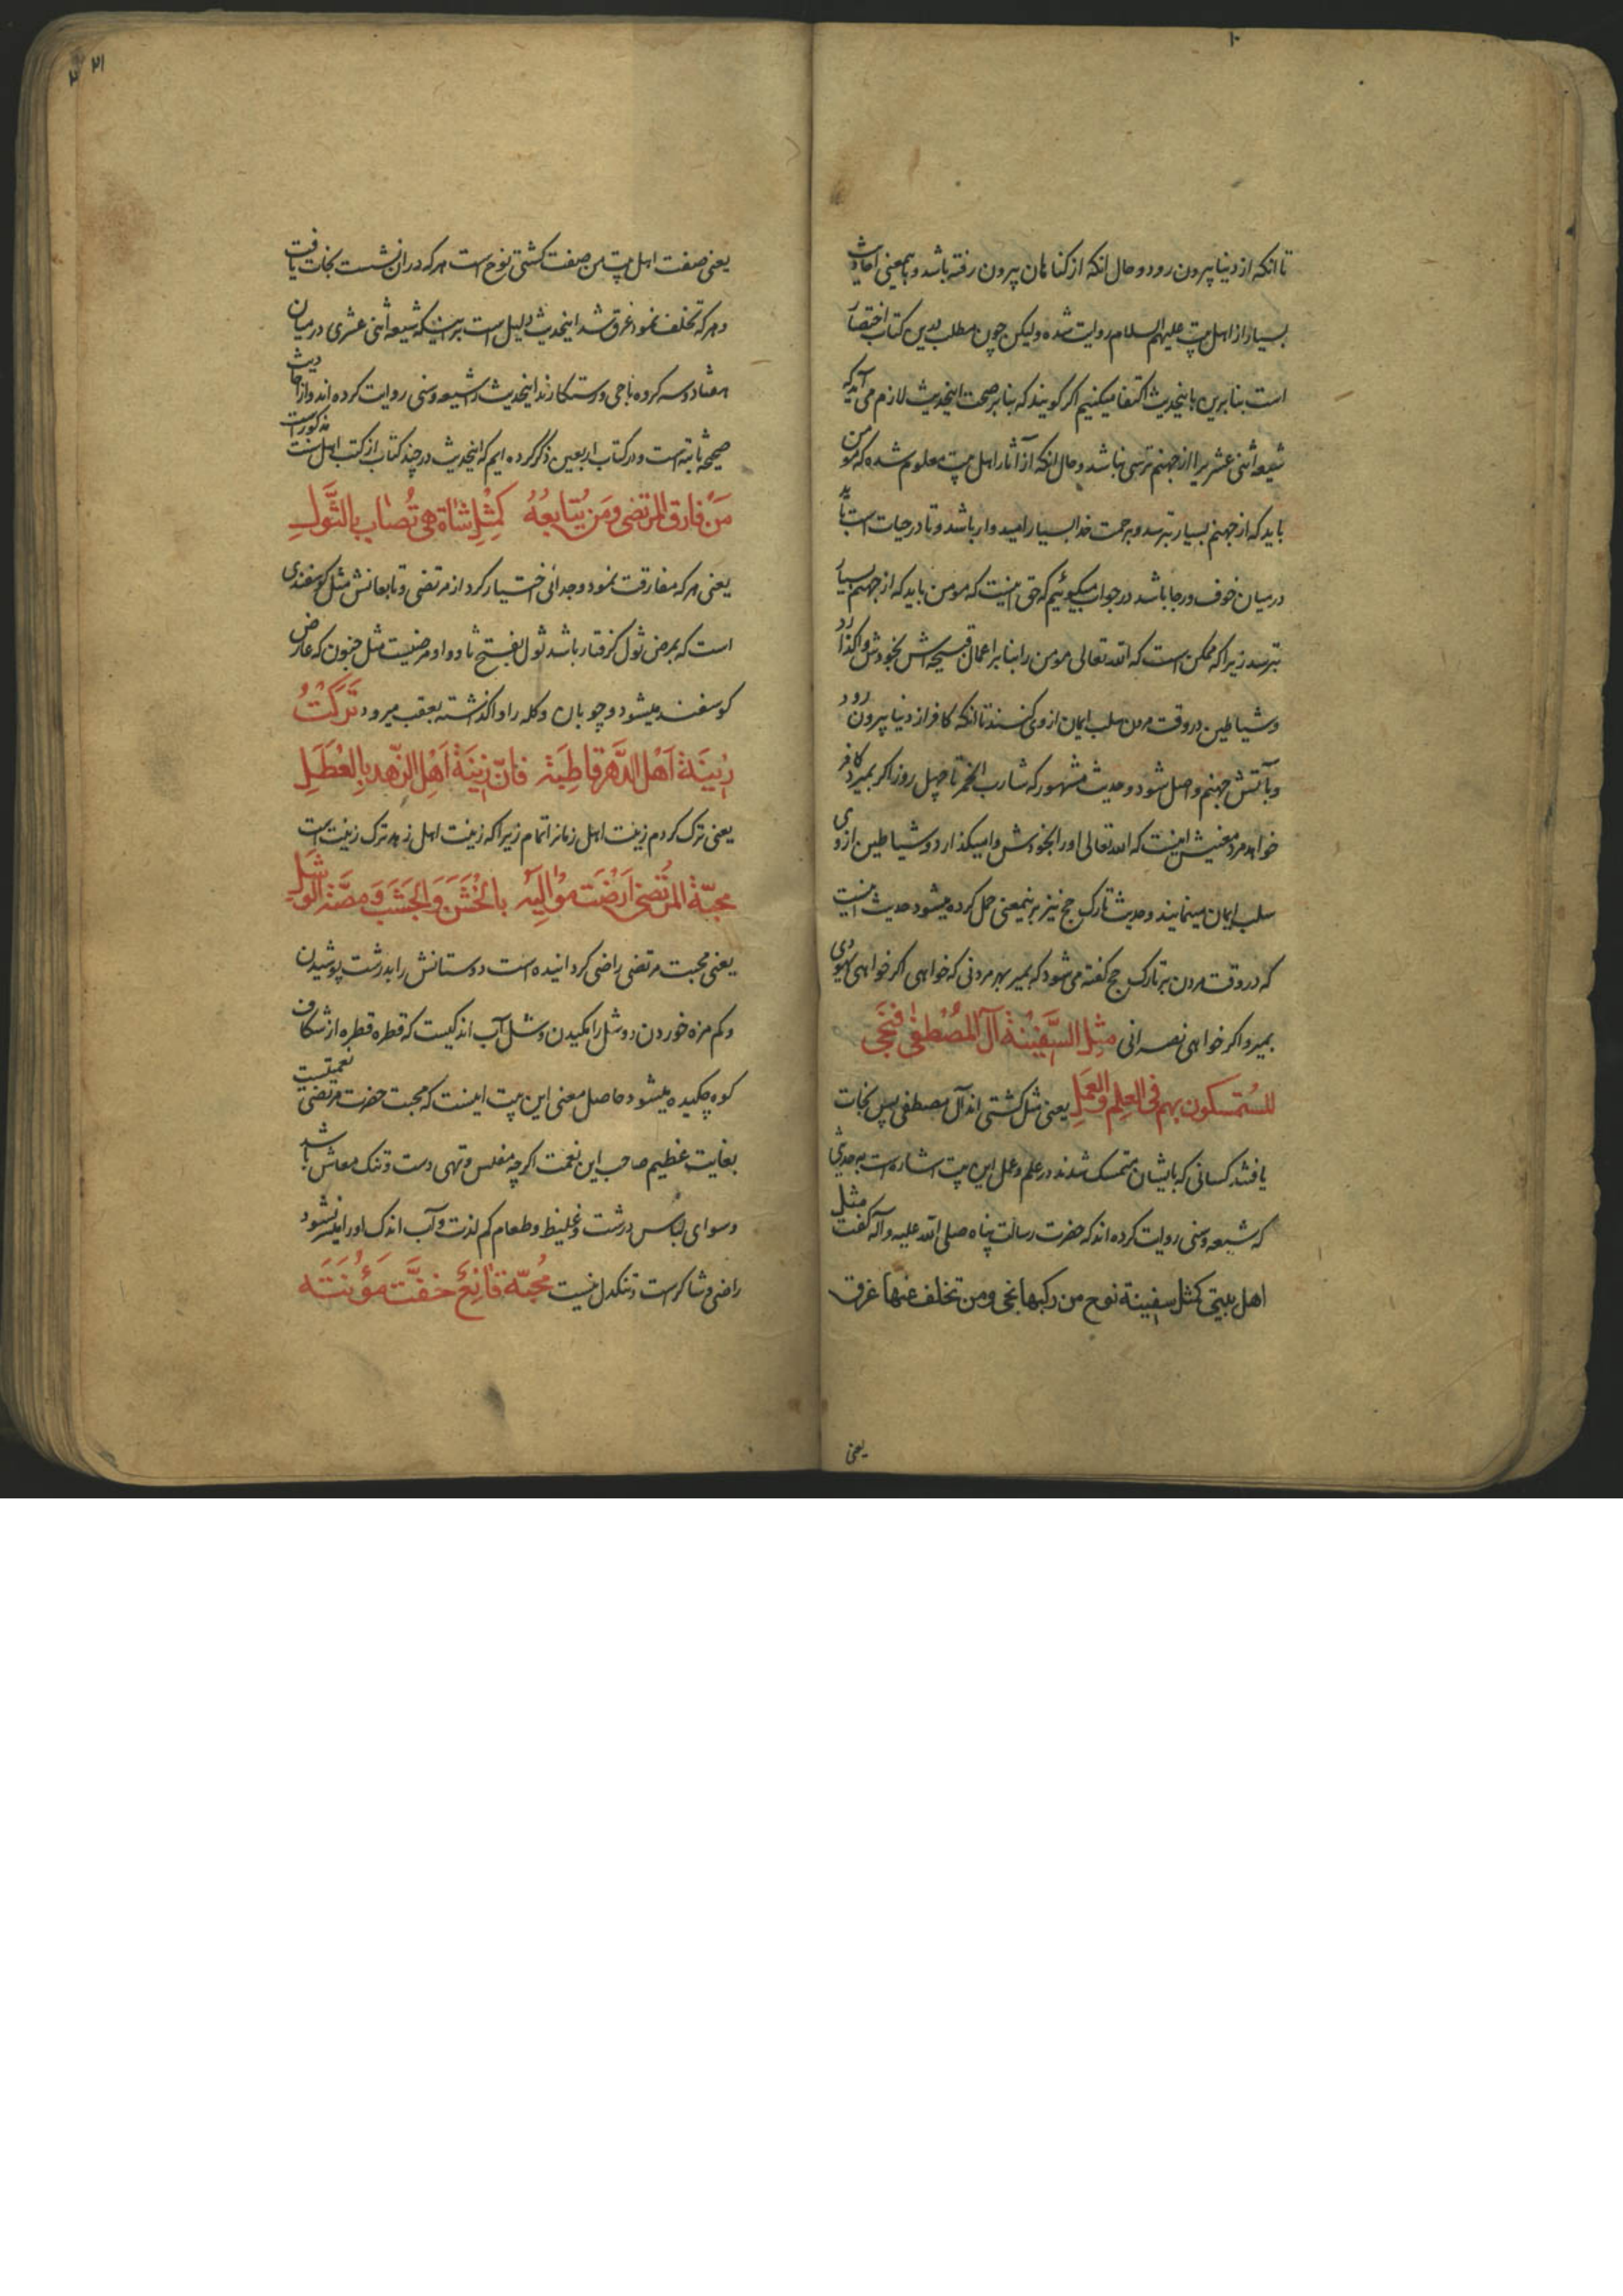 ۱۰
تا انکه از دنیا بیرون رود و حال انکه از کناهان بیرون رفته باشد و باینمعنی احادیث
بسیار از اهل بیت علیهم السلام روایت شده ولیکن چون مطلب درین کتاب اختصار
است بنابرین باینحدیث اکتفا میکنیم اکر کویند که بنابر صحت اینحدیث لازم می آید که
شیعه اثنی عشریرا از جهنم ترسی نباشد و حال انکه از آثار اهل بیت معلوم شده که مومن
باید که از جهنم بسیار بترسد و برحمت خدا بسیار امیدوار باشد و تا در حیات است باید
درمیان خوف و رجا باشد در جواب میکوئیم که حق اینست که مومن باید که از جهنم بسیار
بترسد زیرا که ممکن است که الله تعالی مومن را بنابر اعمال قبیحه اش بخودش واکذارد
و شیاطین در وقت مردن سلب ایمان از وی کنند تا انکه کافر از دنیا بیرون رود
و بآتش جهنم واصل شود و حدیث مشهور که شارب الخمر تا چهل روز اکر بمیرد کافر
خواهد مرد معنیش اینست که الله تعالی او را بخودش وامیکذارد و شیاطین از وی
سلب ایمان مینمایند و حدیث تارک حج نیز برینمعنی حمل کرده میشود حدیث اینست
که در وقت مردن بر تارک حج کفته می شود که بمیر بهر مردنی که خواهی اکر خواهی یهودی
بمیر و اکر خواهی نصرانی مثل السَّفِینَة آل المُصْطَفٰی فنَجَی
للمُتمسکون بهم فی العِلم والعَمَلِ یعنی مثل کشتی اند آل مصطفی پس نجات
یافتند کسانی که بایشان متمسک شدند در علم و عمل این بیت اشاره است به حدیثی
که شیعه و سنی روایت کرده اند که حضرت رسالت پناه صلی الله علیه وآله کفت مثل
اهل بیتی کمثل سفینة نوح من رکبها نجی ومن تخلف عنها غرق
یعنی
۲۱
یعنی صفت اهل بیت من صفت کشتی نوح است هر که در ان نشست نجات یافت
و هر که تخلف نمود غرق شد اینحدیث دلیل است براینکه شیعه اثنی عشری درمیان
هفتاد و سه کروه ناجی و رستکارند اینحدیث را شیعه و سنی روایت کرده اند و از احادیث
صحیحه ثابته است و در کتاب اربعین ذکر کرده ایم که اینحدیث در چند کتاب از کتب اهل سنت مذکور است
مَن فارق المرتضی ومَن یُتابعُهُ کمِثْلِ شاة هی تُصاب بالثَّوَلِ
یعنی هر که مفارقت نمود و جدائی اختیار کرد از مرتضی و تابعانش مثل کوسفندی
است که بمرض ثول کرفتار باشد ثول بفتح ثا و واو مرضیست مثل جنون که عارض
کوسفند میشود و چوبان و کله را واکذاشته بعقب میرود تَرَکْتُ
زِینَة اَهْل الدَّهر قاطِبَة فانّ زینَة اَهْل الزّهد بالعَطَلِ
یعنی ترک کردم زینت اهل زمانرا تمام زیرا که زینت اهل زهد ترک زینت است
محبّة المرتضی اَرْضَت مَوالیَه بالخَشَن والجَشَب ومَصَّة الوَشَل
یعنی محبت مرتضی راضی کردانیده است دوستانش را بدرشت پوشیدن
و کم مزه خوردن و وشل را مکیدن وشل آب اندکیست که قطره قطره از شکاف
کوه چکیده میشود حاصل معنی این بیت اینست که محبت حضرت مرتضی نعمتیست
بغایت عظیم صاحب این نعمت اکرچه مفلس و تهی دست و تنک معاش باشد
و سوای لباس درشت و غلیظ و طعام کم لذت و آب اندک او را میسر نشود
راضی و شاکر است و تنکدل نیست مُحبّهُ قانِعٌ خفَّت مَؤُنَتَه